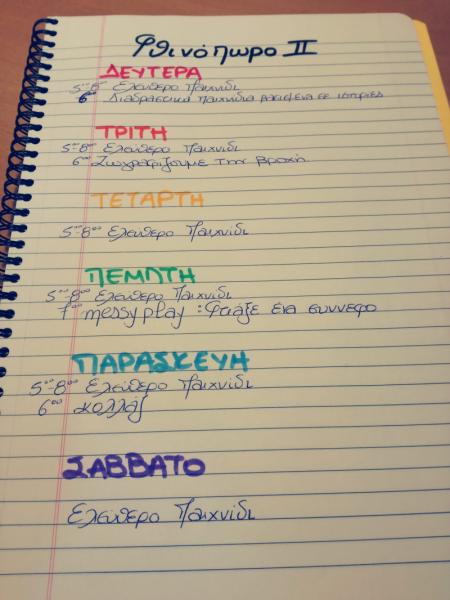 Φθινόπωρο ΙΙ
ΔΕΥΤΕΡΑ
5⁰⁰-8⁰⁰ Ελεύθερο Παιχνίδι
6⁰⁰ Διαδραστικά παιχνίδια βασισμένα σε ιστορίες
ΤΡΙΤΗ
5⁰⁰-8⁰⁰ Ελεύθερο Παιχνίδι
6⁰⁰ Ζωγραφίζουμε την βροχή
ΤΕΤΑΡΤΗ
5⁰⁰-8⁰⁰ Ελεύθερο Παιχνίδι
ΠΕΜΠΤΗ
5⁰⁰-8⁰⁰ Ελεύθερο Παιχνίδι
7⁰⁰ messy play : Φτιάξε ένα σύννεφο
ΠΑΡΑΣΚΕΥΗ
5⁰⁰-8⁰⁰ Ελεύθερο Παιχνίδι
6⁰⁰ κολλάζ
ΣΑΒΒΑΤΟ
Ελεύθερο Παιχνίδι